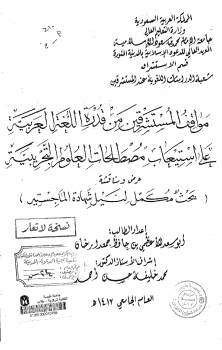 المملكة العربية السعودية
وزارة التعليم العالي
جامعة الإمام محمد بن سعود الإسلامية
المعهد العالي للدعوة الإسلامية بالمدينة المنورة
قسم الاستشراق
شعبة الدراسات اللغوية عند المستشرقين
مواقف المستشرقين من قدرة اللغة العربية
على استيعاب مصطلحات العلوم التجريبية
عرض ومناقشة
( بحث مكمل لنيل شهادة الماجستير )
إعداد الطالب:
أبو سعد الأعظمي بن حافظ خان
إشراف الأستاذ الدكتور:
محمد خليفة حسن أحمد
العام الجامعي ١٤١٢هـ